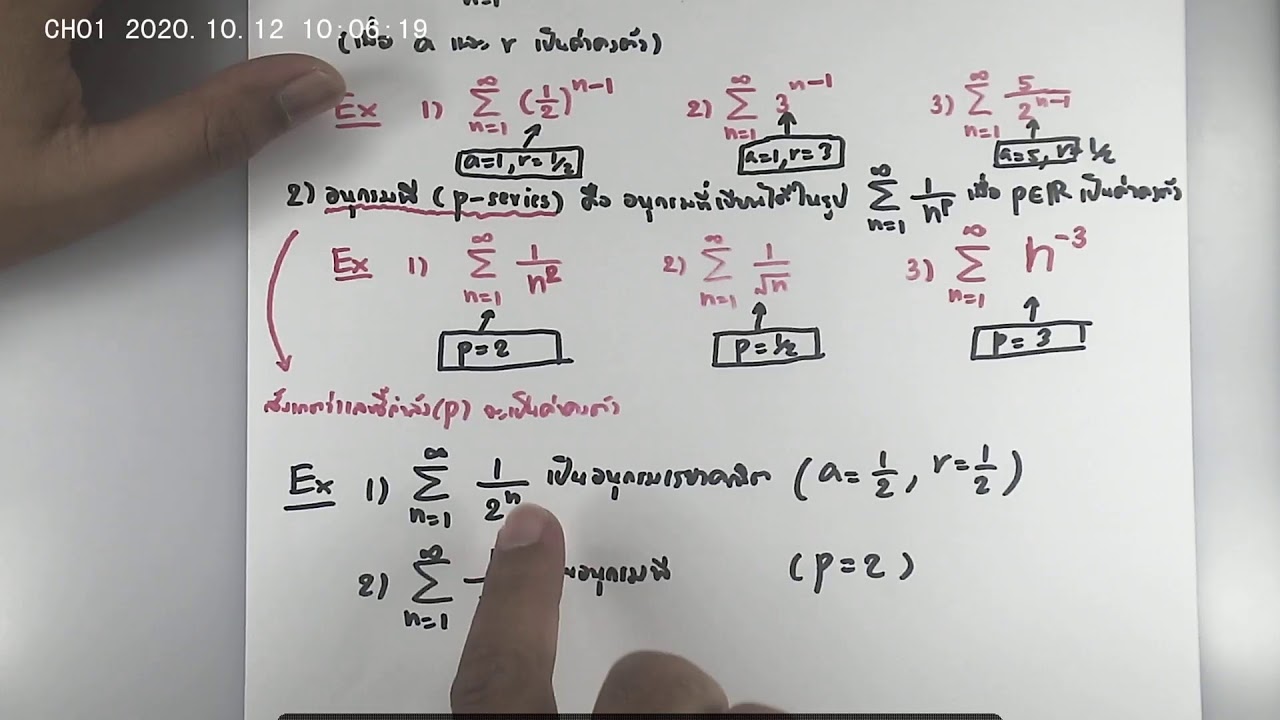 CH01 2020.10.12 10:06:19
n=1
(เมื่อ a และ r เป็นค่าคงตัว)
Ex 1) ∑_{n=1}^{∞} (1/2)^{n-1} 2) ∑_{n=1}^{∞} 3^{n-1} 3) ∑_{n=1}^{∞} 5/2^{n-1}
a=1, r=1/2 a=1, r=3 a=5, r=1/2
2) อนุกรมพี (p-series) คือ อนุกรมที่เขียนได้ในรูป ∑_{n=1}^{∞} 1/n^p เมื่อ p∈ℝ เป็นค่าคงตัว
Ex 1) ∑_{n=1}^{∞} 1/n^2 2) ∑_{n=1}^{∞} 1/√n 3) ∑_{n=1}^{∞} n^{-3}
p=2 p=1/2 p=3
สังเกตว่าเลขชี้กำลัง(p) จะเป็นค่าคงตัว
Ex 1) ∑_{n=1}^{∞} 1/2^n เป็นอนุกรมเรขาคณิต (a=1/2, r=1/2)
2) ∑_{n=1}^{∞} อนุกรมพี (p=2)